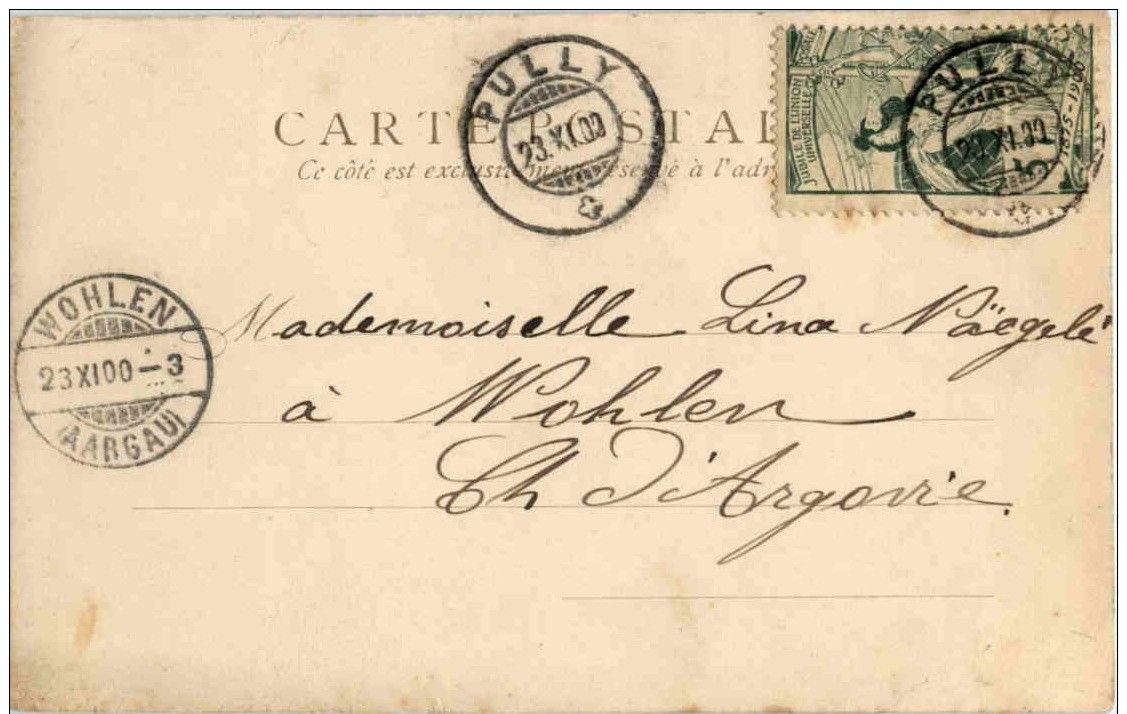 PULLY
23.XI.00
CARTE POSTAL
Ce côté est exclusivement réservé à l'adr
JUBILÉ DE L'UNION
UNIVERSELLE
1875-1900
PULLY
23.XI.00
WOHLEN
23XI00-3
(AARGAU)
Mademoiselle Lina Näegelé
à Wohlen
Ct d'Argovie.